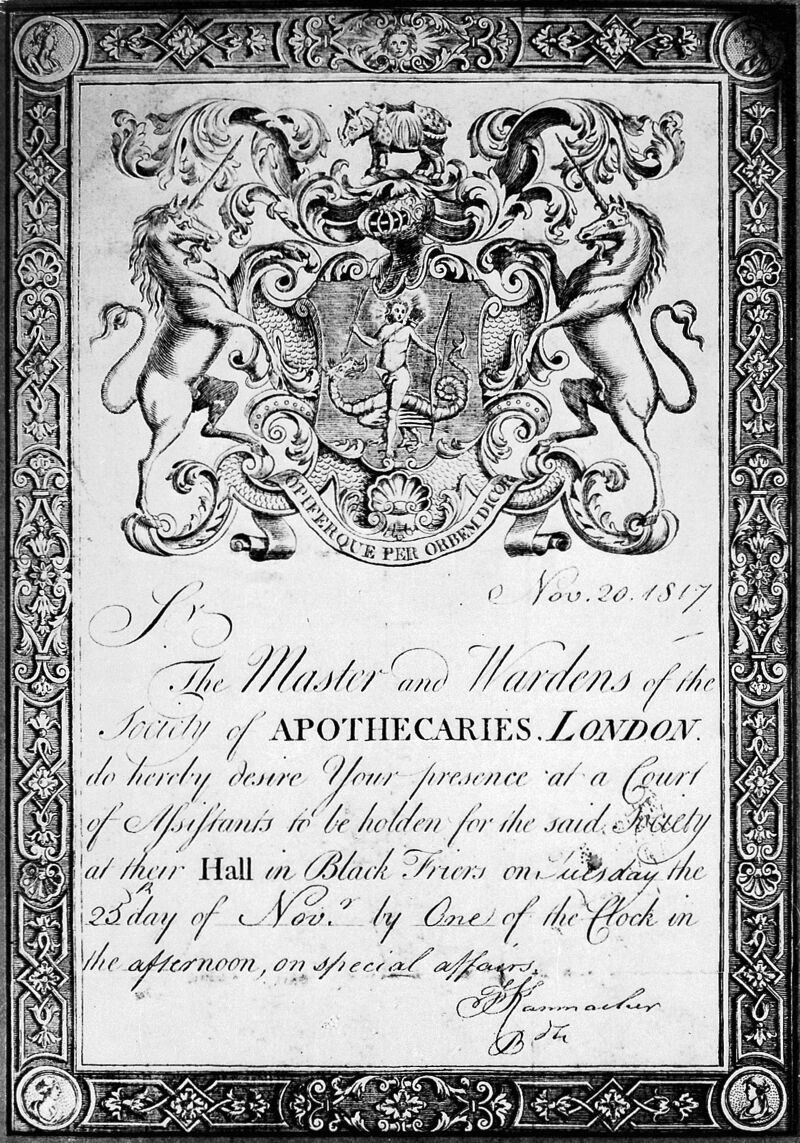 OPIFERQUE PER ORBEM DICOR
Nov. 20. 1817
Sr
The Master and Wardens of the
Society of APOTHECARIES. LONDON.
do hereby desire Your presence at a Court
of Aſsiſtants to be holden for the said Society
at their Hall in Black Friers on Tuesday the
25 day of Nov.r by One of the Clock in
the afternoon, on special affairs.
Kanmacher